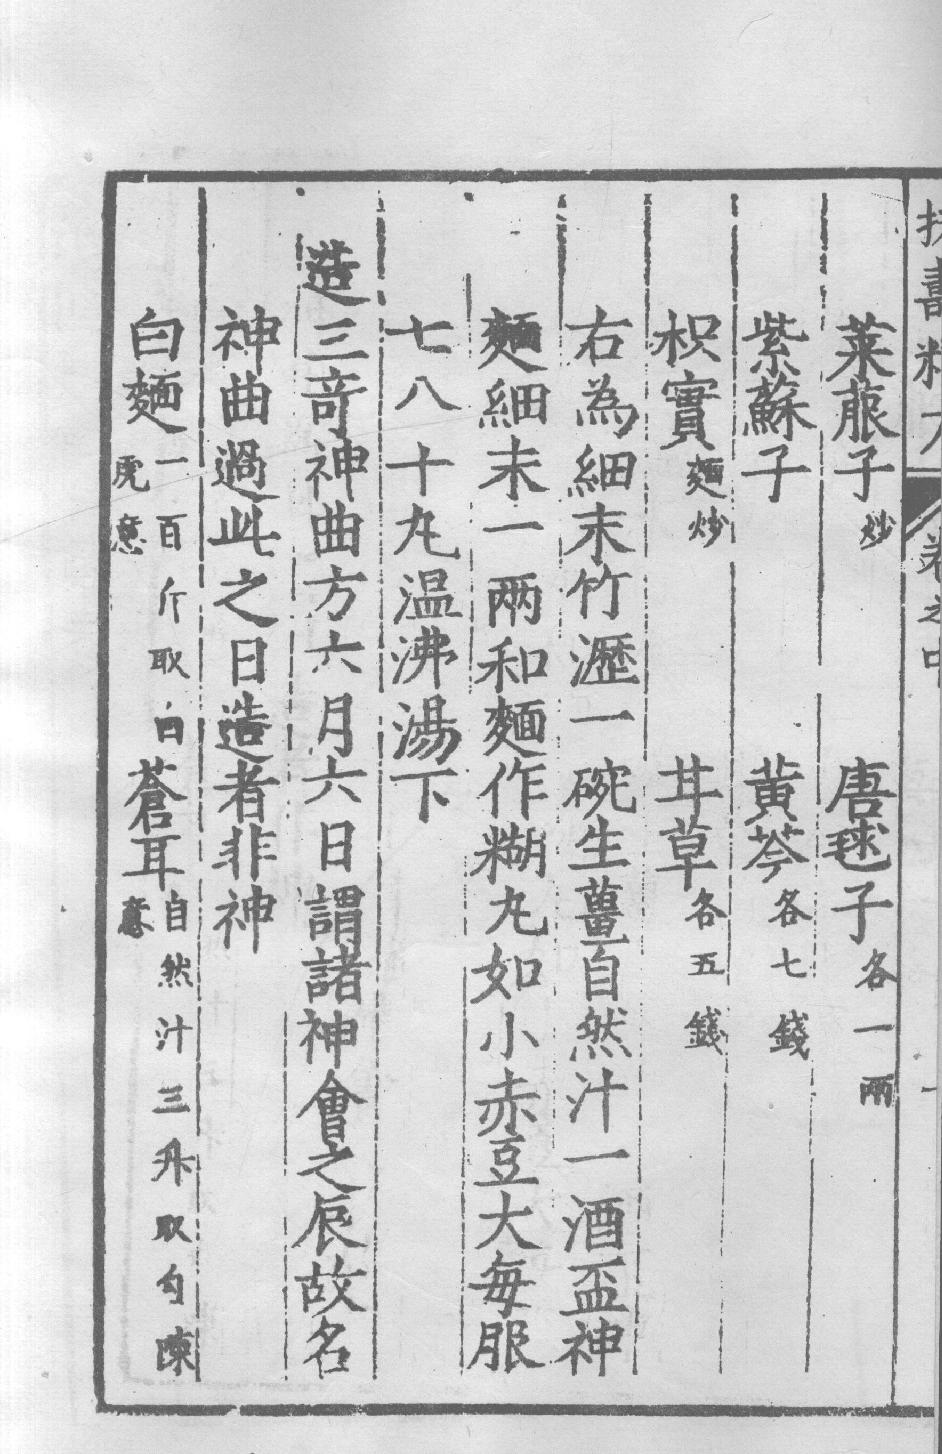 萊菔子炒 唐毬子各一兩
紫蘇子 黄芩各七錢
枳實麵炒 甘草各五錢
右為細末竹瀝一碗生薑自然汁一酒盃神
麵細末一兩和麵作糊丸如小赤豆大每服
七八十丸温沸湯下
造三竒神曲方六月六日謂諸神會之辰故名
神曲過此之日造者非神
白麵一百斤取白虎意 蒼耳自然汁三升取勾陳意
卷之中